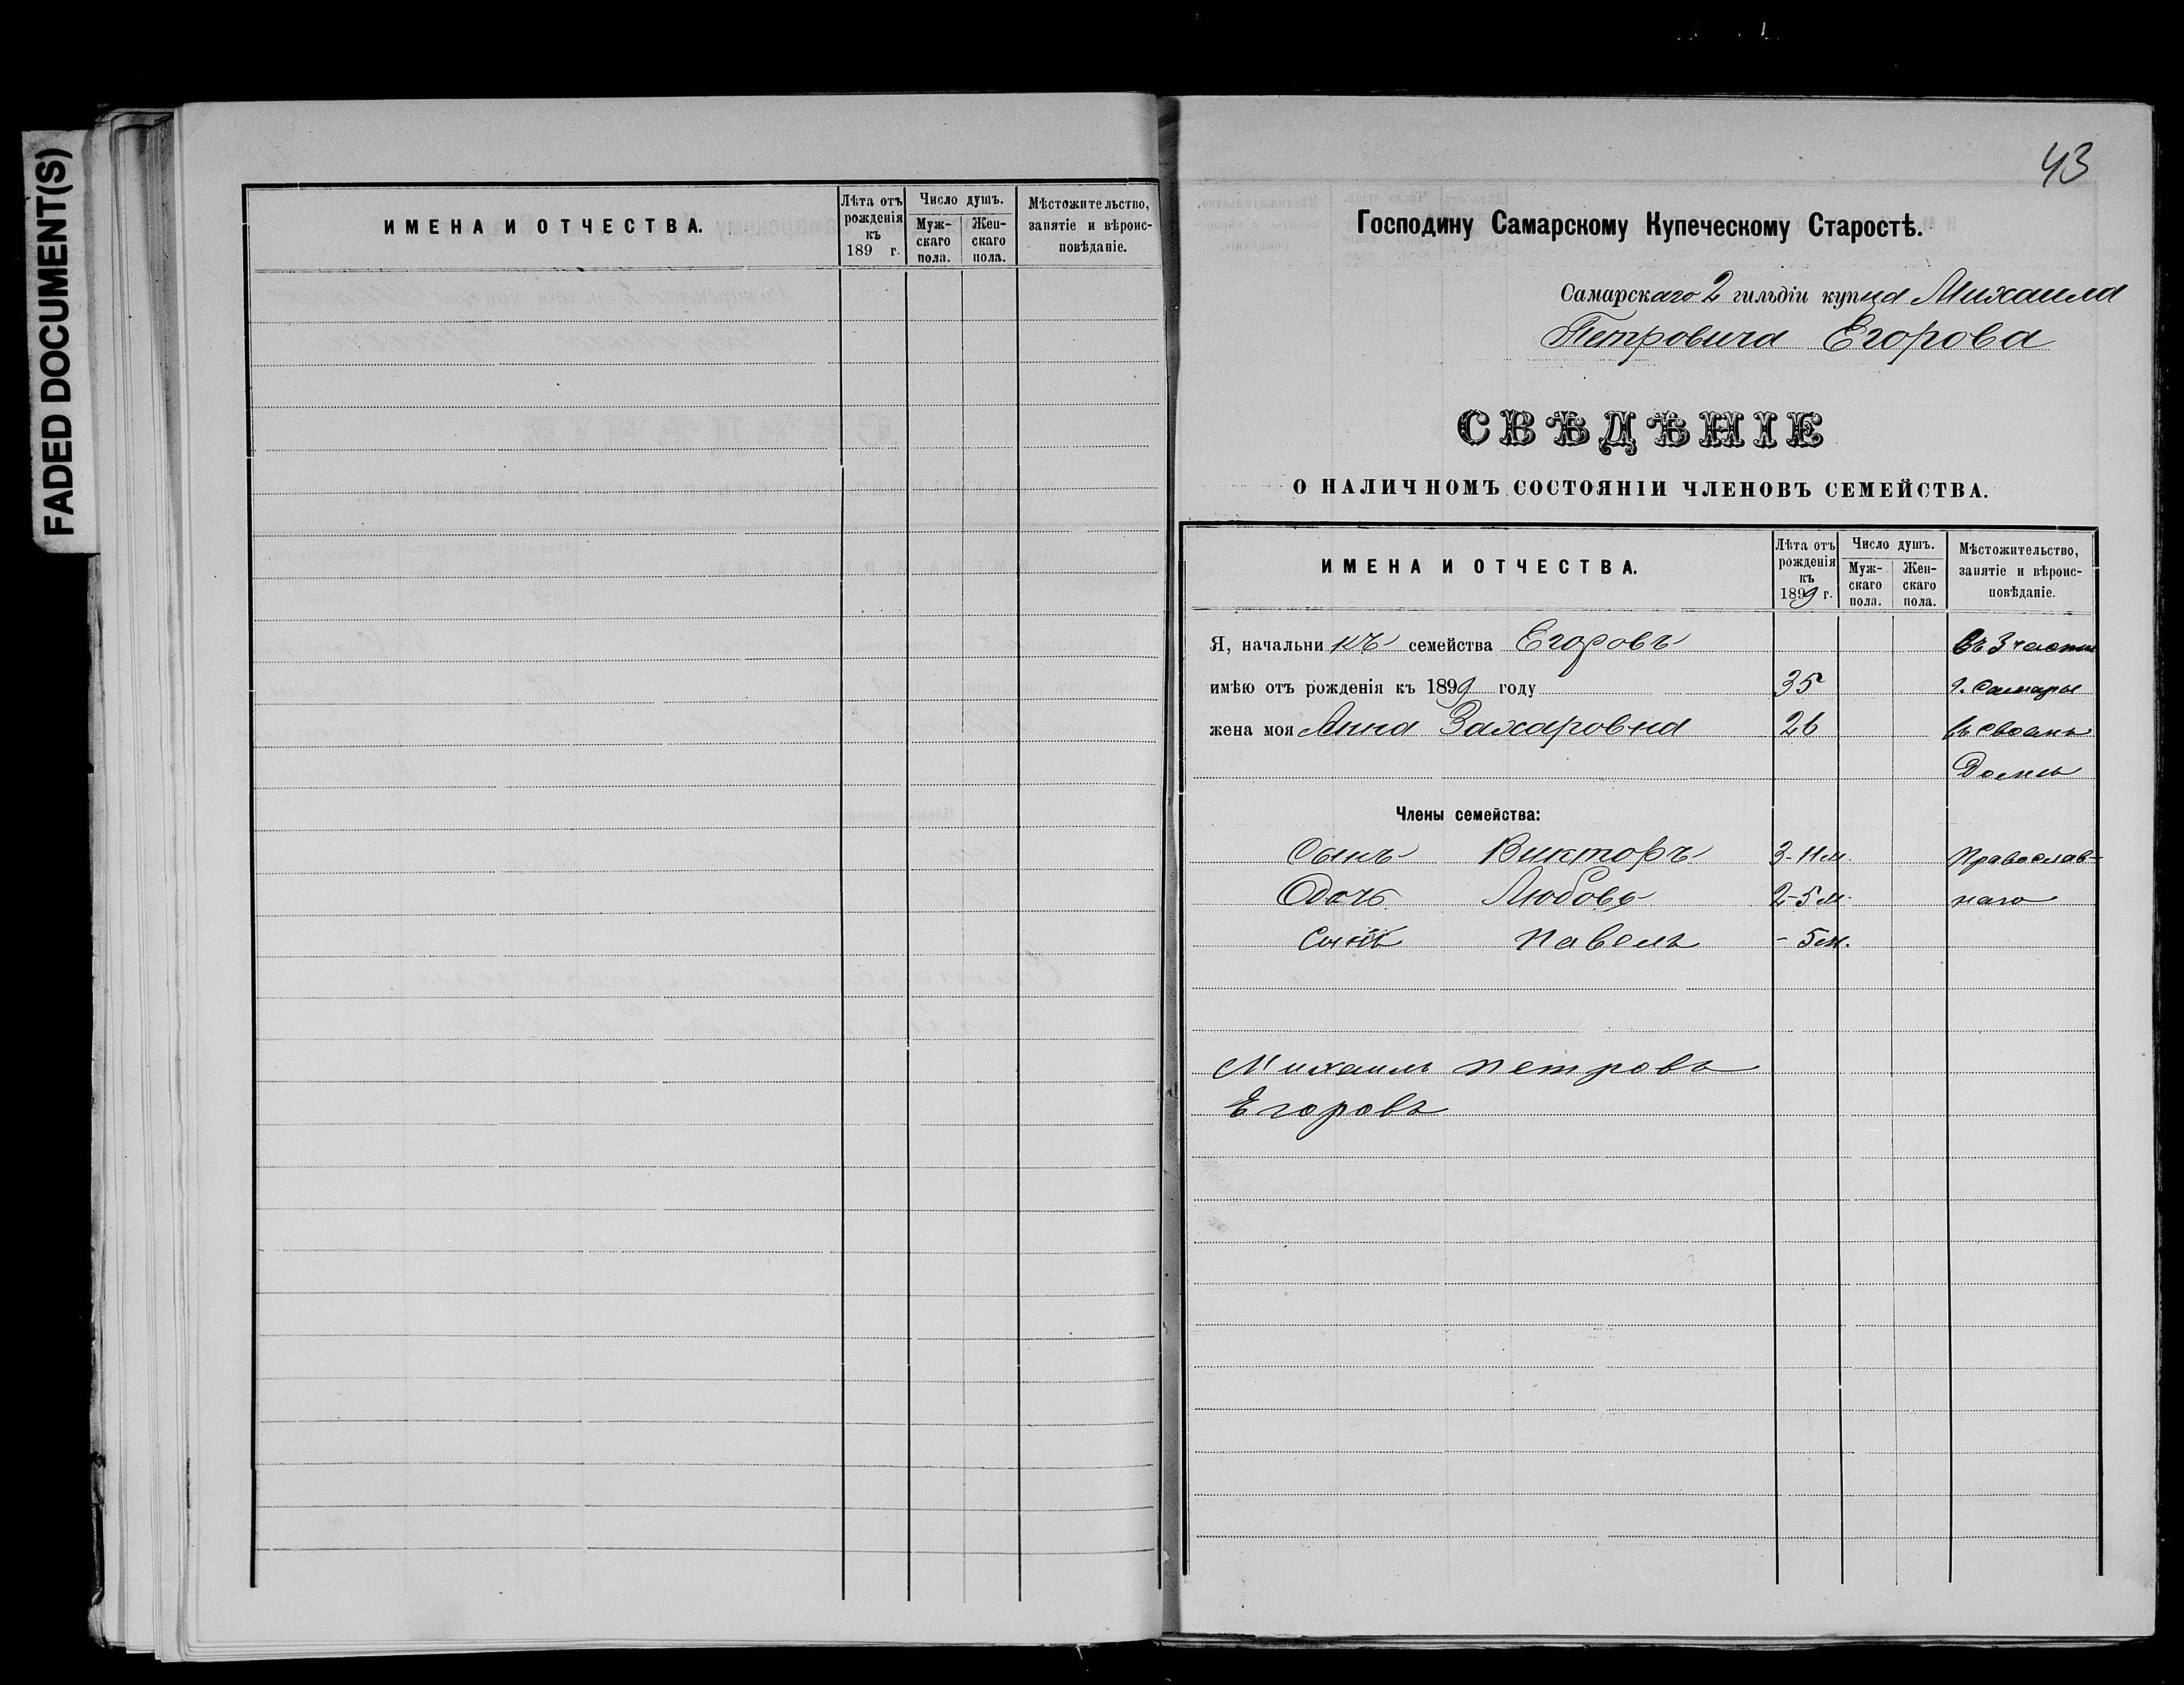 FADED DOCUMENT(S)
ИМЕНА И ОТЧЕСТВА.
Лѣта отъ рожденія къ 189 г.
Число душъ.
Мужскаго пола.
Женскаго пола.
Мѣстожительство, занятіе и вѣроисповѣданіе.
43
Господину Самарскому Купеческому Старостѣ.
Самарскаго 2 гильдіи купца Михаила
Петровича Егорова
СВѢДѢНІЕ
О НАЛИЧНОМЪ СОСТОЯНІИ ЧЛЕНОВЪ СЕМЕЙСТВА.
ИМЕНА И ОТЧЕСТВА.
Лѣта отъ рожденія къ 1899 г.
Число душъ.
Мужскаго пола.
Женскаго пола.
Мѣстожительство, занятіе и вѣроисповѣданіе.
Я, начальникъ семейства Егоровъ Въ 3 части
имѣю отъ рожденія къ 1899 году 35 г. Самары
жена моя Анна Захаровна 26 въ своемъ
Домѣ
Члены семейства:
Сынъ Викторъ 3-11 м. Православ-
Дочь Любовь 2-5 м. наго
Сынъ Павелъ - 5 м.
Михаилъ Петровъ
Егоровъ